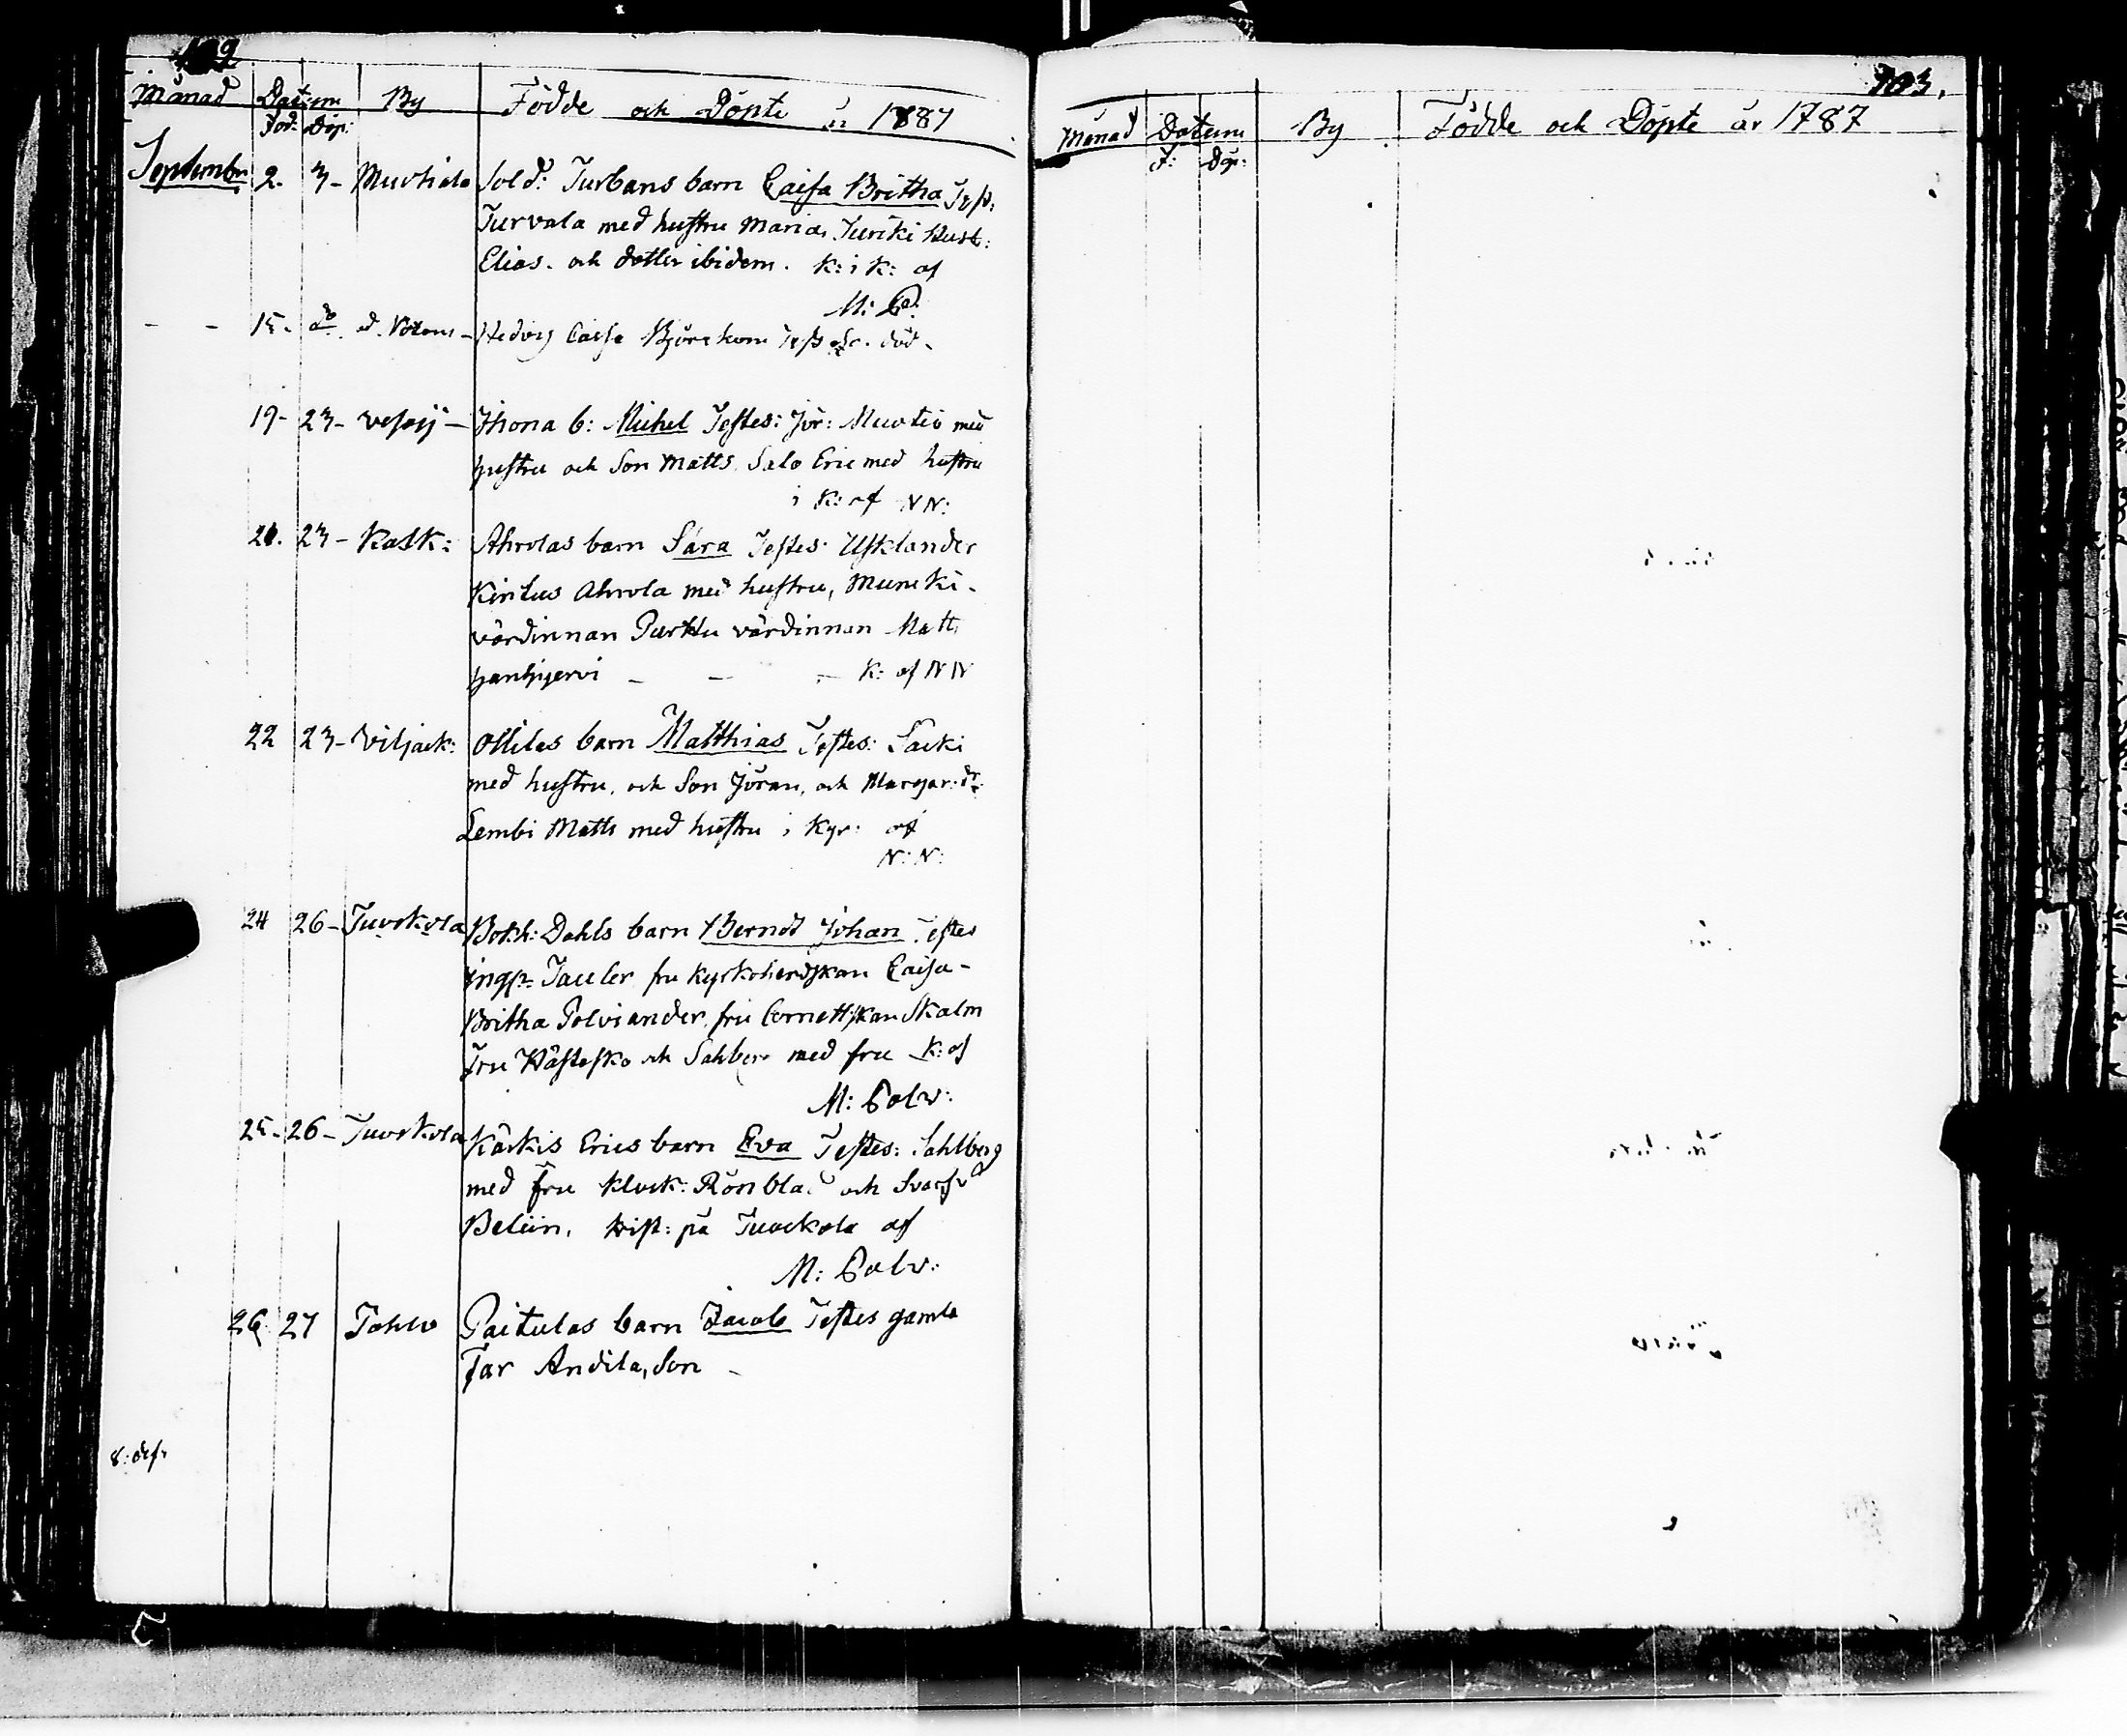 Månad Datum By Födde och Döpte år 1787
Föd: Döp:
Septembr 2. 3- Murhiala Sold: Turbans barn Caisa Britha Test:
Turvala med hustru Maria, Juriki Hust:
Elias. och dotter ibidem. K: i K: af
M: P:
- - 15. do. Hedvig Caisa Björckom död.
19- 23- vesijj- Jhona b: Michel Testes: Jör: Muotio med
hustru och Son Matts. Salo Eric med hustru
i K: af NN:
21. 23- Kask: Ahrolas barn Sara Testes: Ufklander
Kiritus Ahrola med hustru, Muneki-
värdinnan Purttu värdinnan Matts
hanhijervi - - - K: af NN
22 23- Viljack: Ollilas barn Matthias Testes: Lacki
med hustru, och Son Jöran, och Margar: dr.
Lembi Matts med hustru i Kyr: af
N: N:
24 26- Tuorkola Bokh: Dahls barn Berndt Johan Testes
Tauler fru Kyrkoherdskan Caisa-
Britha Polviander, fru Cornettskan Skalm
Fru Hästesko och Sahlberg med fru K: af
M: Polv:
25- 26- Tuorkola Kärkis Erics barn Eva Testes: Sahlberg
med fru Klock: Rönblad och
Beliin. Krist: på Tuorkola af
M: Polv:
26 27 Tohlo Paitulas barn Jacob Testes gamla
Far Andila, Son -
103.
Månad Datum By Födde och Döpte år 1787
F: Döp: